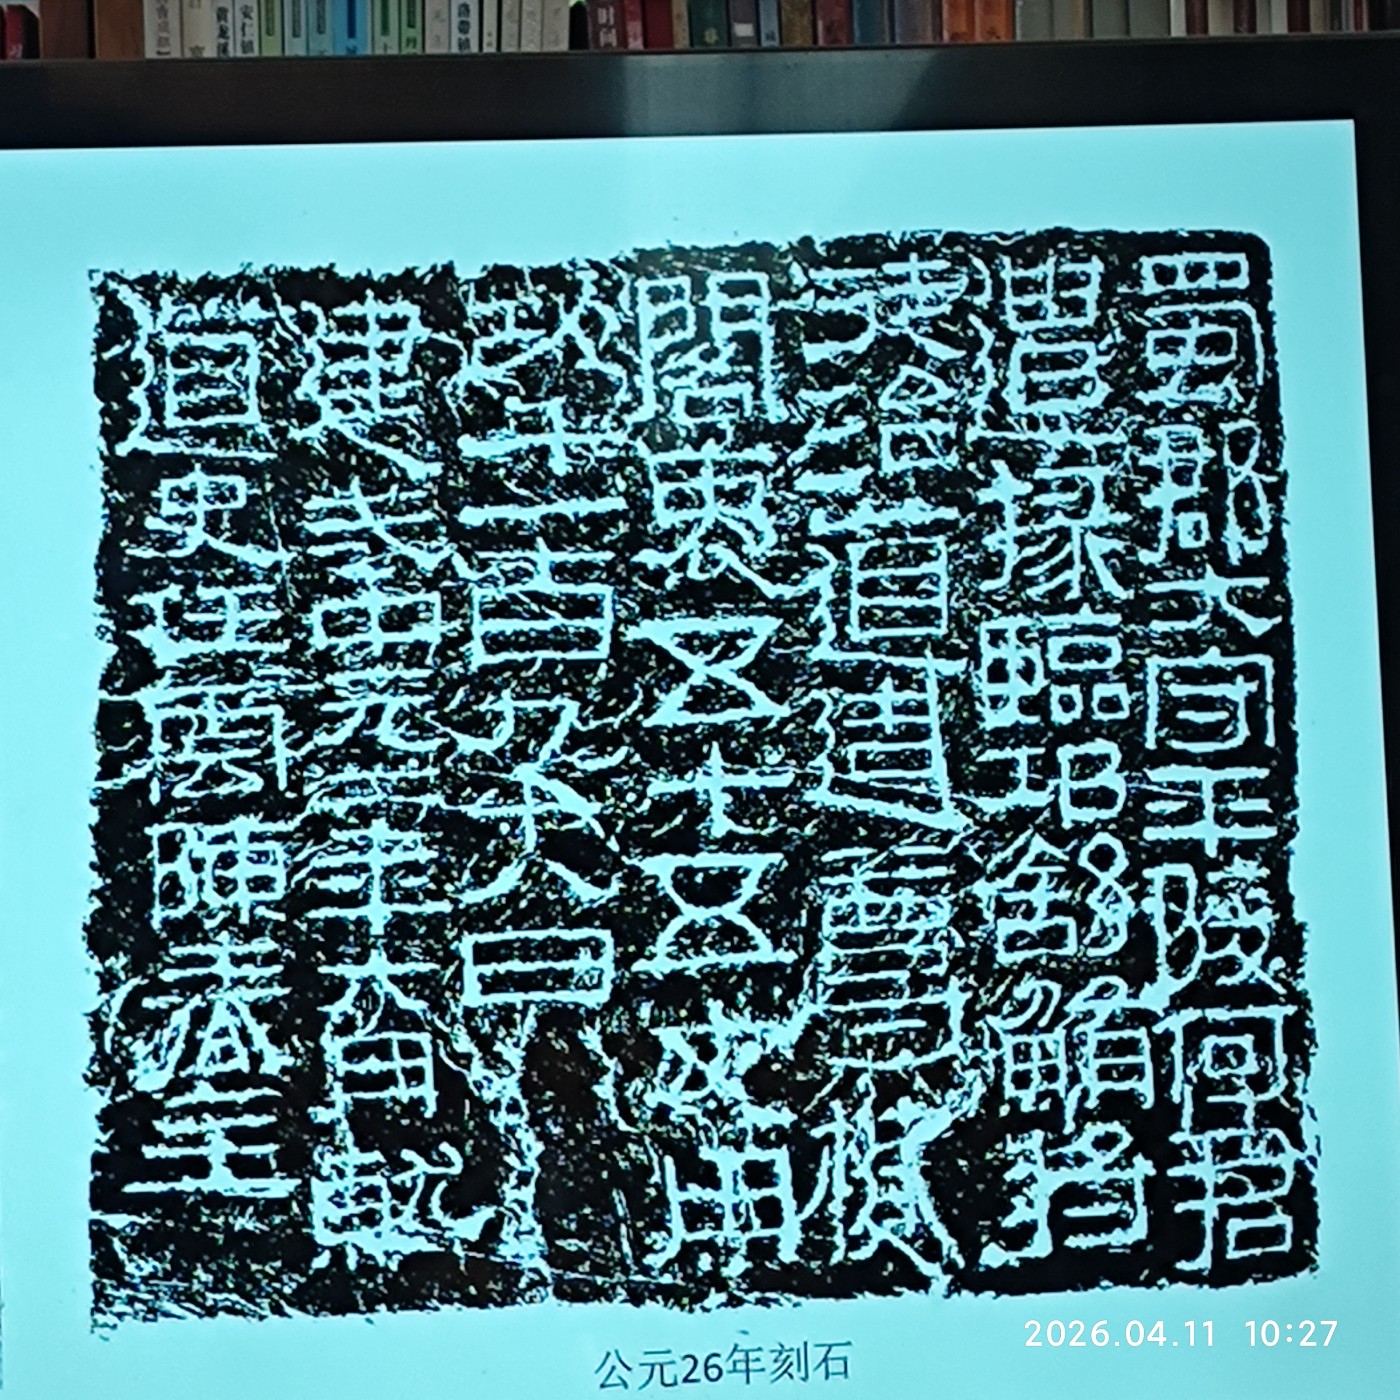 黄龙溪
安仁镇
洛带镇
蜀郡大守平陵何君
遣掾臨邛舒鮪將
徒治道造尊楗
閣袤五十五丈用
功千一百九十八日
建武中元二年六月就
道史任雲陳春主
公元26年刻石
2026.04.11 10:27